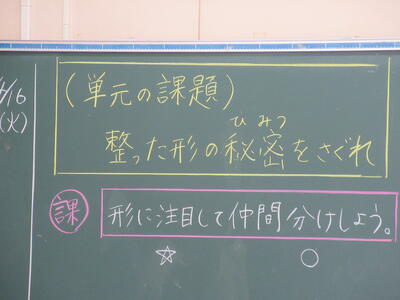 /16
(火)
(単元の課題)
ひみつ
整った形の秘密をさぐれ
課 形に注目して仲間分けしよう。
☆ ○